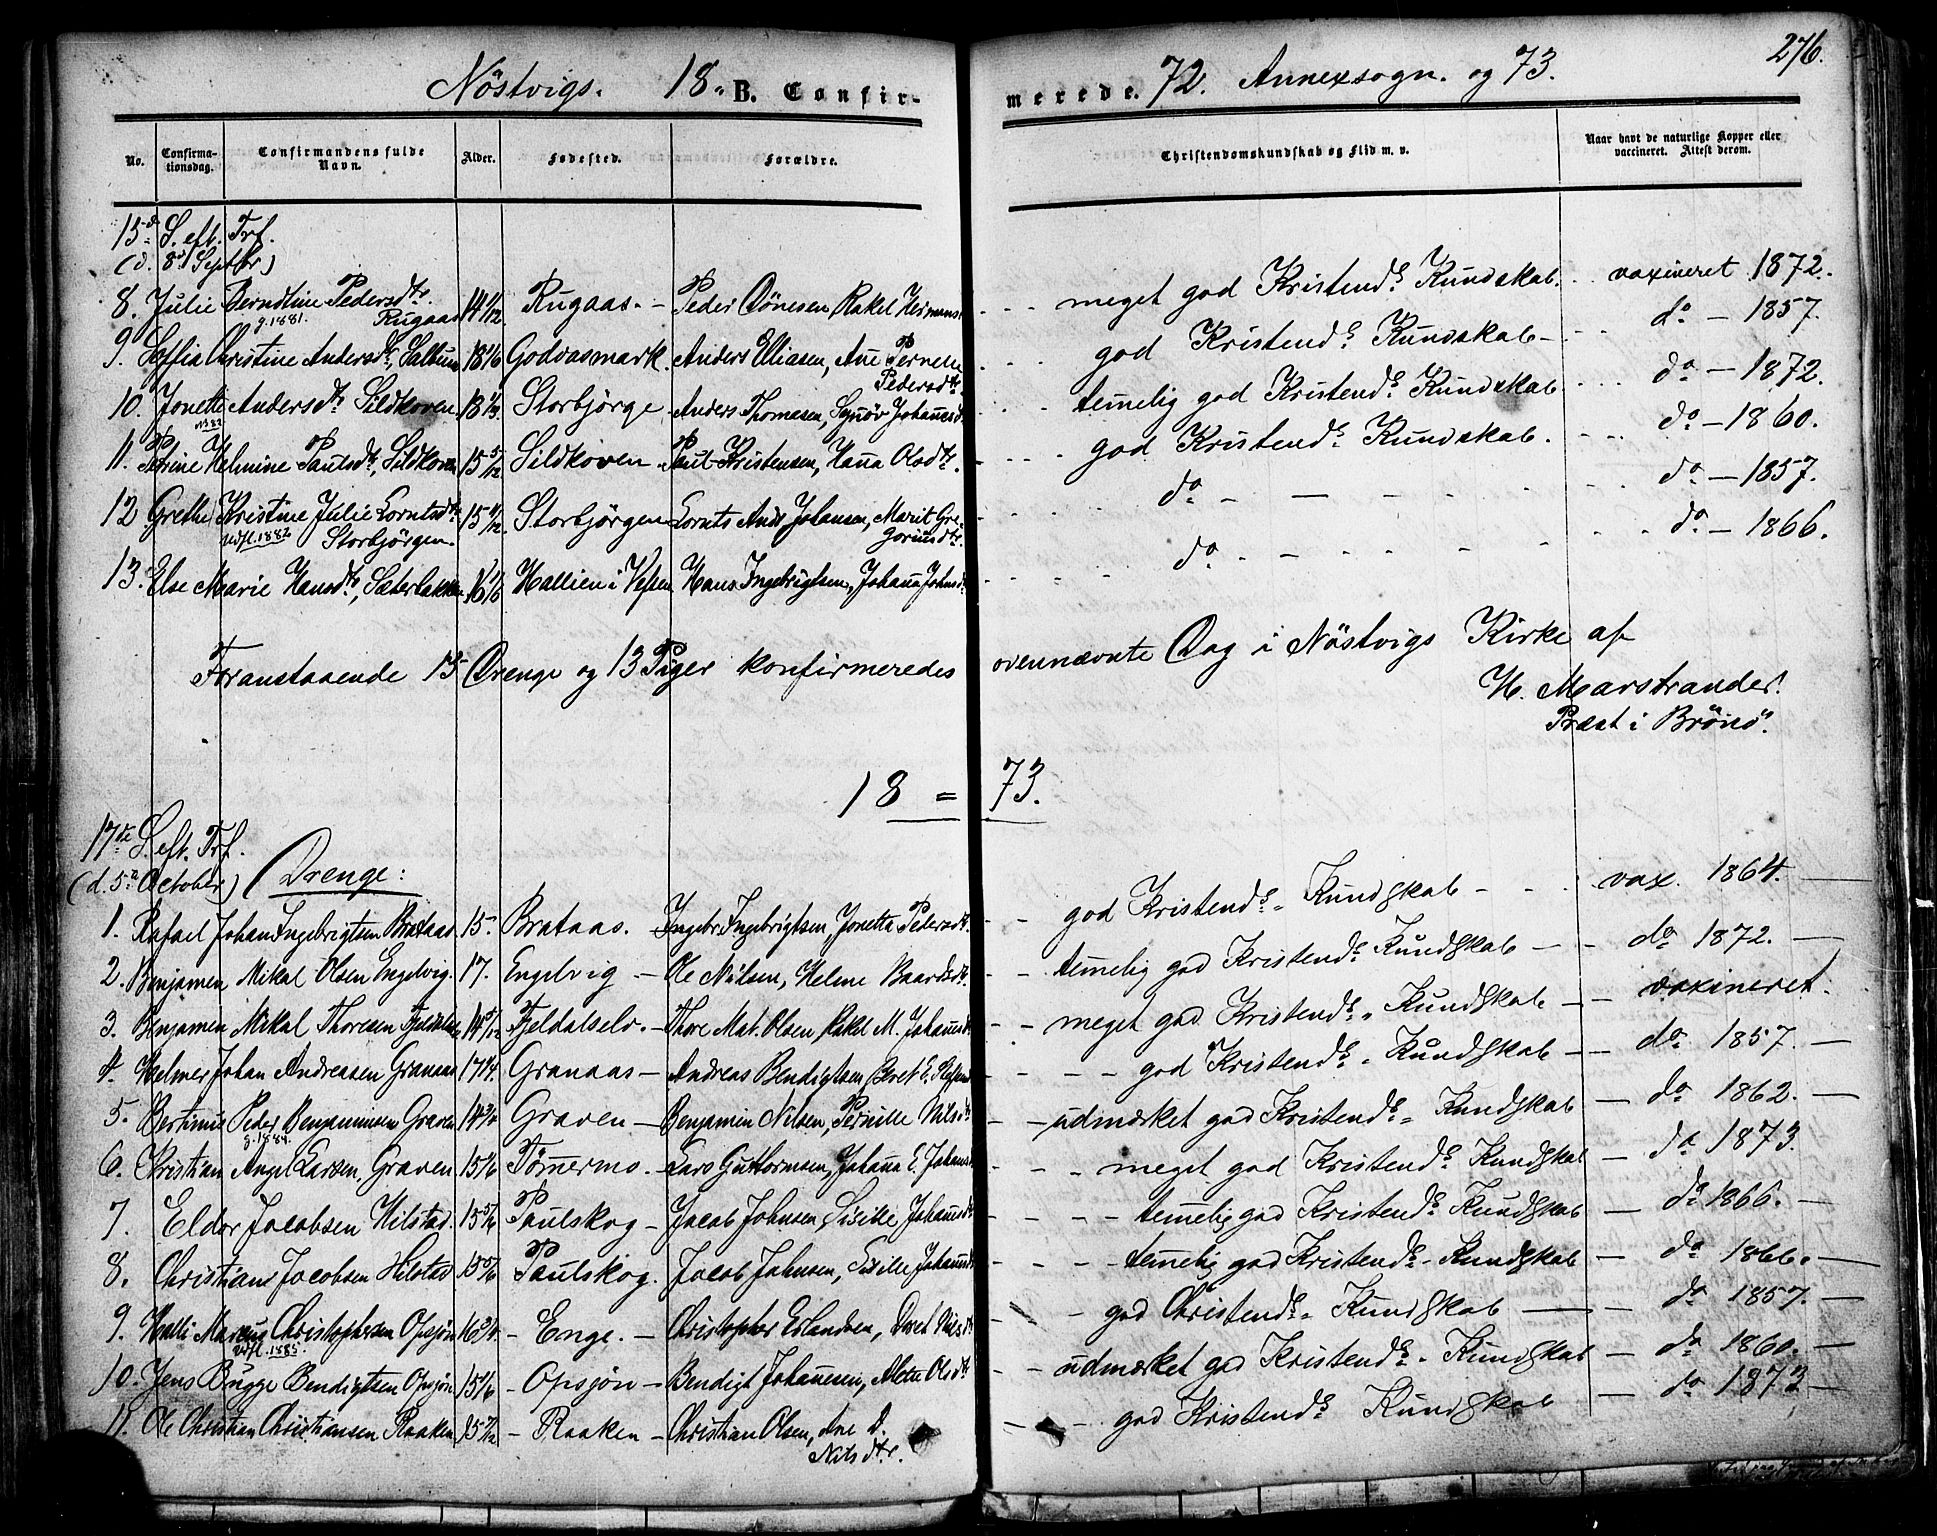 276.
Nöstvigs. 18 B. Confirmerede. 72. Annexsogn. og 73.
No. Confirmationsdag. Confirmandens fulde Navn. Alder. Fødested. Forældre. Christendomskundskab og Flid m. v. Naar havt de naturlige Kopper eller vaccineret. Attest derom.
15de S. eft. Trf.
(d. 8de Septbr)
8. Julie Berndtine Pedersdtr Rugaas 14 11/12 Rugaas. - Peder Dönesen Rakel Hermans meget god Kristends Kundskab. vaxineret 1872.
g. 1881.
9. Soffia Christine Andersdtr, Salbuen 18 1/6 Godvasmark. Anders Elliasen, Ane Pernelle Pedersdtr. god Kristends Kundskab - do - 1857.
10. Jonette Andersdtr Sildkoven 18 1/3 Storbjörge Anders Thomesen, Synöv Johanesdtr temelig god Kristends Kundskab do - 1872.
11. Petrine Helmine Paulsdtr, Sildkoven 15 5/12 Sildkoven - Paul Kristensen, Hana Olsdtr. god Kristends Kundskab. do - 1860.
12 Grethe Kristine Julie Lorntsdtr Storbjörgen. 15 11/12 Storbjörgen Lornts Ands Johansen, Marit Gregoriusdtr. do - do - 1857.
udfl. 1882
13. Else Marie Hansdtr, Sæterbakken 16 1/6 Hallien i Vefsen Hans Ingebrigtsen, Johana Johnsdtr do - do - 1866.
Foranstaaende 15 Drenge og 13 Piger konfirmeredes ovennævnte Dag i Nöstvigs Kirke af
H. Marstrander.
Præst i Brönö.
18 = 73.
17de S. eft. Trf.
(d. 5te October) Drenge:
1. Rafael Johan Ingebrigtsen Brataas. 15 - Brataas. - Ingebr Ingebrigtsen, Jonetta Pedersdtr. god Kristends Kundskab - vax. 1864.
2. Benjamen Mikal Olsen Engelvig. 17. Engelvig - Ole Nilsen, Helene Baardsdtr. temelig god Kristends Kundskab - do 1872.
3. Benjamen Mikal Thoresen Fjeldalselv 14 5/12 Fjeldalselv. - Thore Mat. Olsen Rakel M. Johansdtr meget god Kristends Kundskab - vaxineret.
4. Helmer Johan Andreasen Granaas 17 1/4. Granaas - Andreas Bendigtsen Beret E. god Kristends Kundskab - do 1857.
5. Bertinus Peder Benjaminsen Graven 14 3/4 Graven - Benjamin Nilsen, Pernille Nilsdtr udmærket god Kristends Kundskab - do 1862.
g. 1884.
6. Christian Angel Larsen, Graven 15 1/6 Tömermo. - Lars Guttormsen, Johana E. Johansdtr meget god Kristends Kundskab - do 1873.
7. Eldor Jacobsen Hilstad. 15 5/6 Paulskog - Jacob Johnsen, Sisille Johansdtr temelig god Kristends Kundskab do 1866.
8. Christians Jacobsen Hilstad 15 5/6 Paulskog. Jacob Johnsen, Sisille Johansdtr temelig god Kristends Kundskab - do 1866.
9. Halli Marcus Christophersen Opsjön 16 3/4. - Enge. - Christopher Erlandsen, Doret Nilsdtr god Christends Kundskab - do 1857.
udfl. 1885.
10. Jens Bugge Bendigtsen Opsjön 15 1/6 - Opsjön - Bendigt Johanesen, Aletta Olsdtr udmærket god Kristends Kundskab - do 1860.
11. Ole Christian Christiansen Raaken 15 7/12 - Raaken - Christian Olsen, Ane D. Nilsdtr. god Kristends Kundskab - do 1873